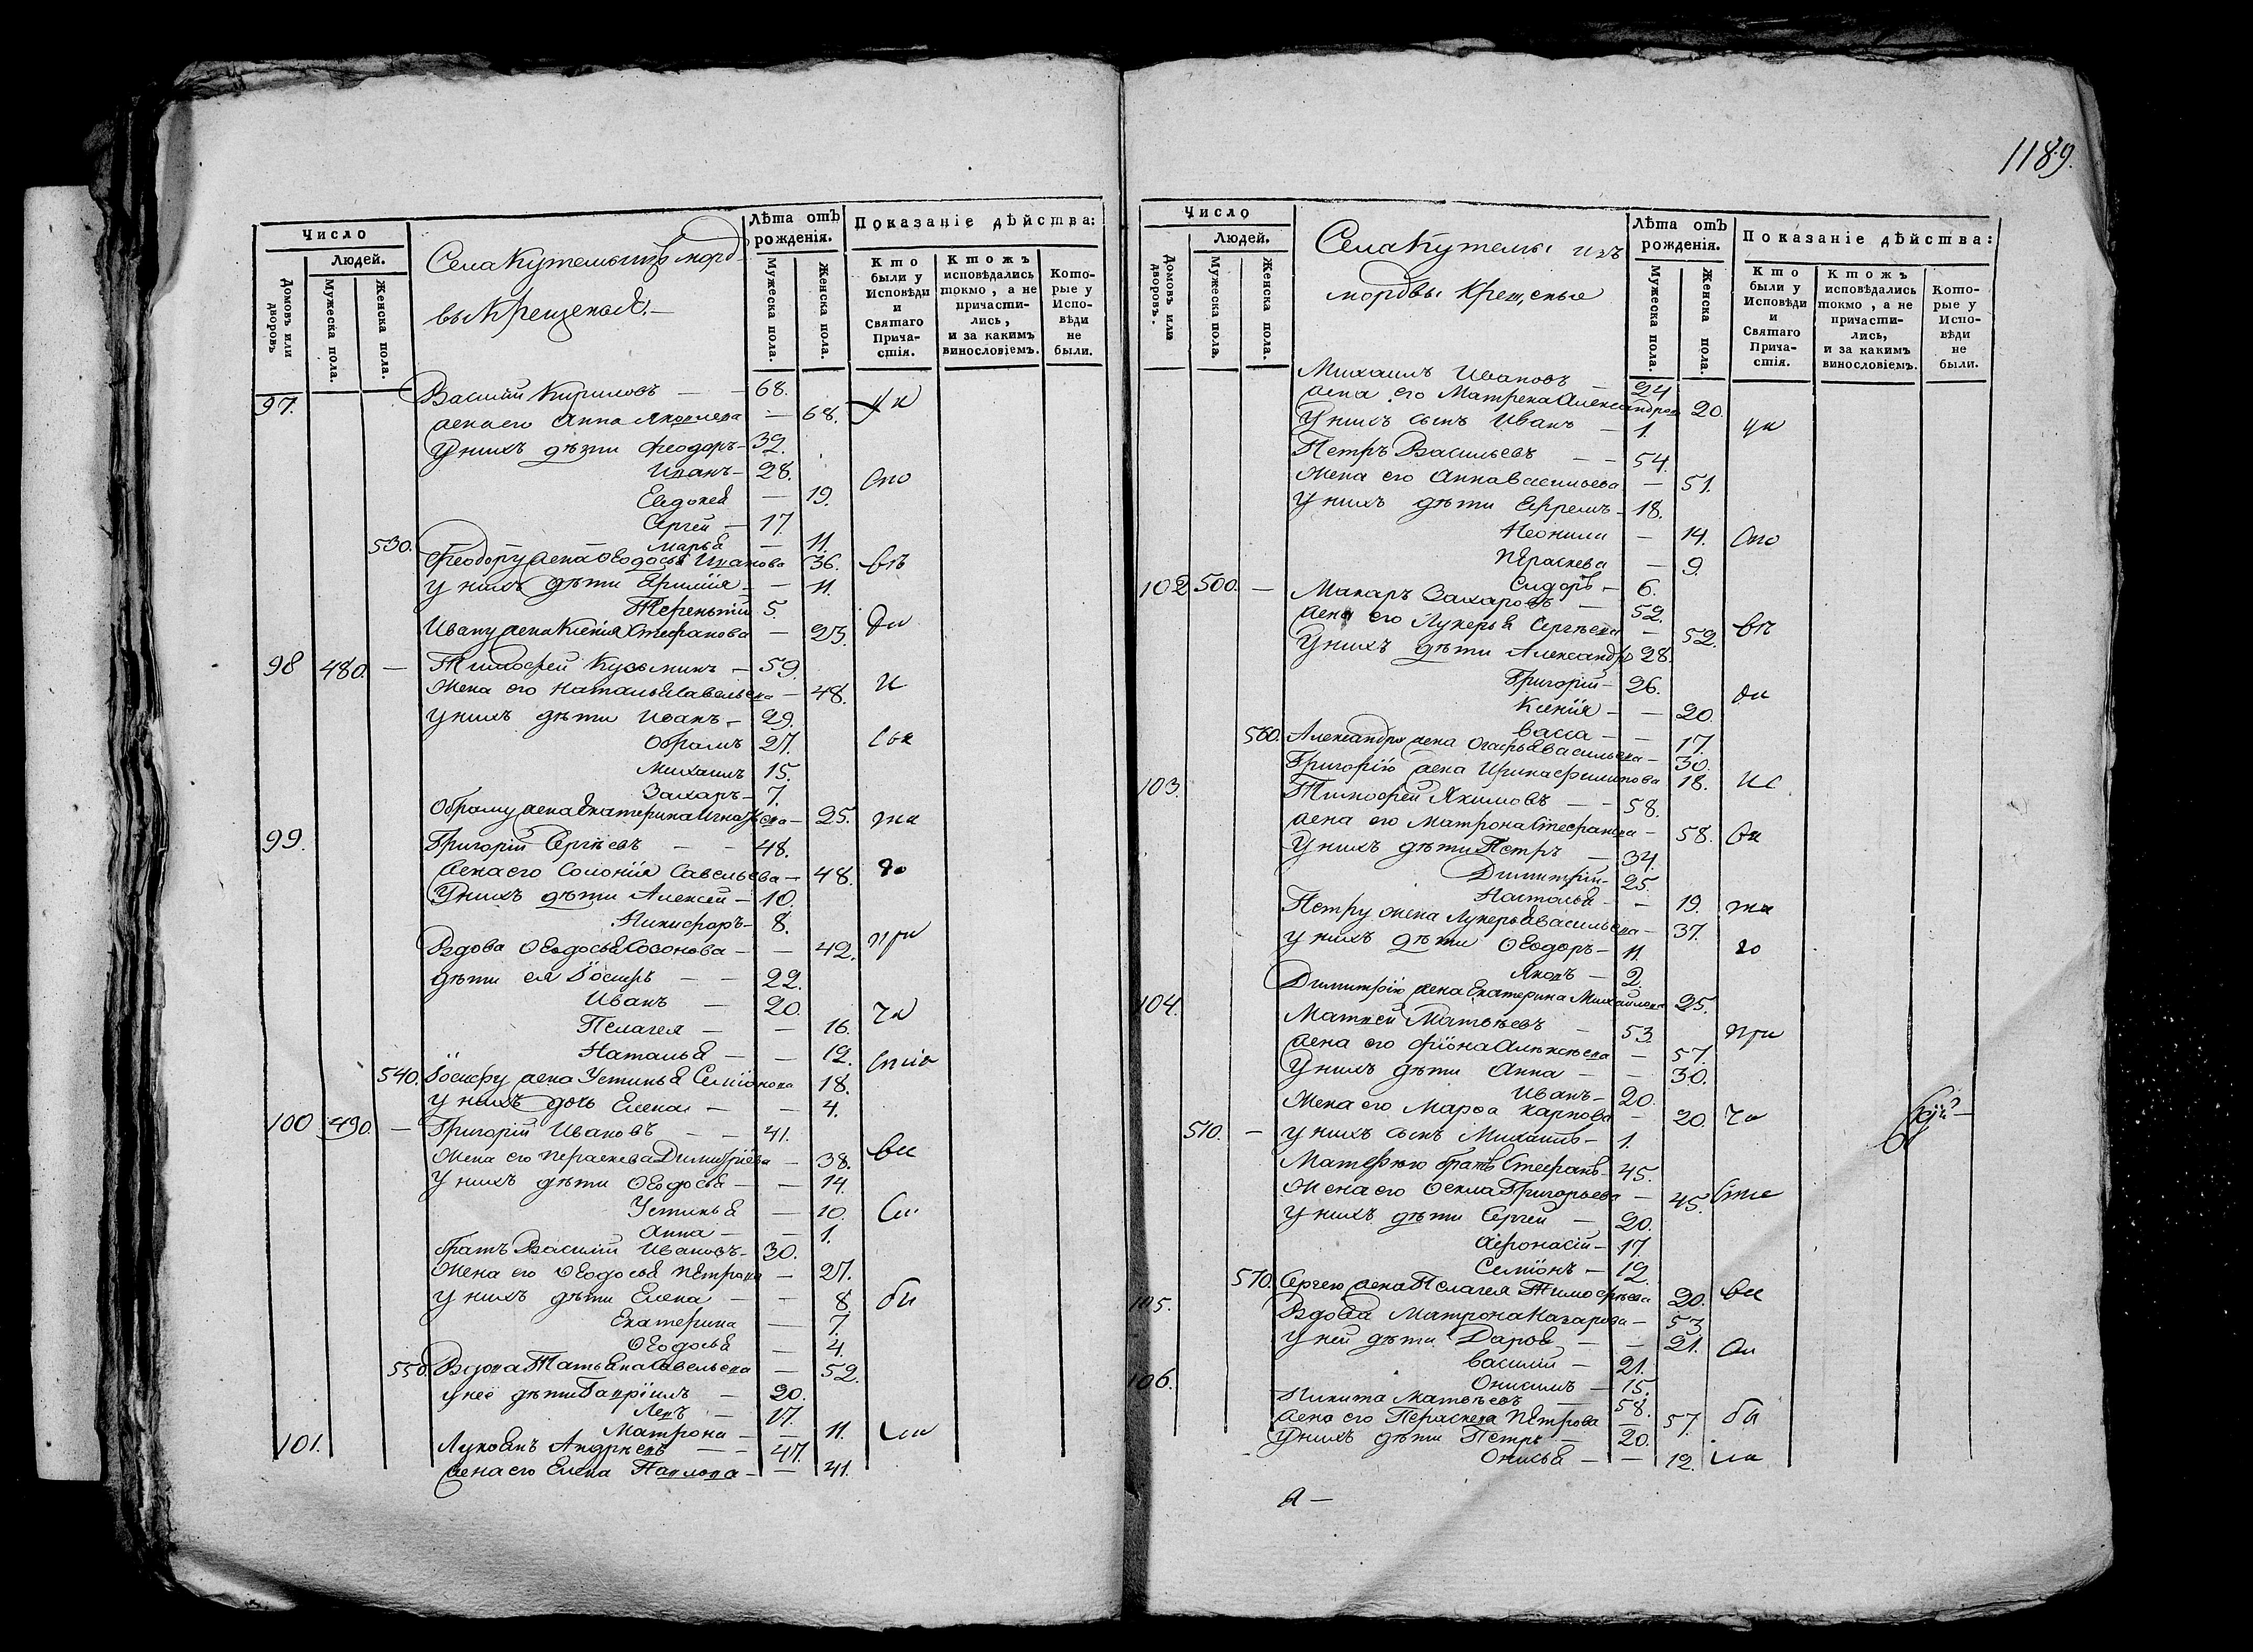 1189.
Число
Людей.
Домовъ или дворовъ
Мужеска пола.
Женска пола.
Села Кутемы изъ морд
вы Крещеной.
Лѣта отъ рожденія.
Мужеска пола.
Женска пола.
Показаніе дѣйства:
Кто были у Исповѣди и Святаго Прича-стія.
Ктожъ исповѣдались токмо, а не причасти-лись, и за какимъ винословіемъ.
Кото-рые у Испо-вѣди не были.
97. Василій Кириловъ — 68.
жена его Анна Яковлева — 68.
У нихъ дѣти Феодоръ — 39.
Иванъ — 28.
Евдокея — 19.
Сергей — 17.
530. Марья — 11.
Феодору жена Ѳеодосья Иванова 36.
у нихъ дѣти — 11.
Терентий 5.
Ивану жена Ксения Стефанова — 23.
98 480. — Тимофей Кузьминъ — 59.
Жена его Наталья Савельева — 48.
у нихъ дѣти Иванъ — 29.
Обрамъ 27.
Михаилъ 15.
Захаръ — 7.
Обраму жена Екатерина — 25.
99. Григорій Сергѣевъ — — 48.
жена его Солонія Савельева — 48.
У нихъ дѣти Алексей — 10.
Никифоръ — 8.
Вдова Ѳеодосья Созонова — — 42.
дѣти ея Іосифъ — — 22.
Иванъ — 20.
Пелагея — — 16.
Наталья — — 12.
540. Іосифу жена Устинья Семіонова 18.
у нихъ дочь Елена — — 4.
100 490. — Григорій Ивановъ — — 41.
Жена его Пераскева Димитріева — 38.
у нихъ дѣти Ѳеодосья — — 14.
Устинья — 10.
Анна — — 1.
братъ Василій Ивановъ — 30.
Жена его Ѳеодосья Петрова — 27.
у нихъ дѣти Елена — — 8.
Екатерина — 7.
Ѳеодосья — 4.
550. Вдова Татьяна Савельева — 52.
у неё дѣти Гавріилъ — 20.
Левъ — 17.
Матрона — — 11.
101. Лукоянъ Андрѣевъ — — 47.
жена его Елена Павлова — — 41.
Число
Людей.
Домовъ или дворовъ.
Мужеска пола.
Женска пола.
Села Кутемы изъ
мордвы Крещенья
Лѣта отъ рожденія.
Мужеска пола.
Женска пола.
Показаніе дѣйства:
Кто были у Исповѣди и Святаго Прича-стія.
Ктожъ исповѣдались токмо, а не причасти-лись, и за какимъ винословіемъ.
Кото-рые у Испо-вѣди не были.
Михаилъ Ивановъ — 24
жена его Матрена Александрова 20.
У нихъ сынъ Иванъ — 1.
Петръ Васильевъ — — 54.
Жена его Анна Васильева — 51.
У нихъ дѣти Ефремъ — 18.
Неонила — 14.
Пераскева — 9.
500. — Сидоръ — 6.
102 Макаръ Захаровъ — 52.
жена его Лукерья Сергѣева — 52.
У нихъ дѣти Александръ 28.
Григорій — 26.
Ксенія — — 20.
Васса — — 17.
560. Александру жена Васильева — 30.
Григорію жена Ирина Филипова 18.
103. Тимофей Якимовъ — — 58.
жена его Матрона Стефанова — 58.
У нихъ дѣти Петръ — 34.
Димитрій — 25.
Настасья — — 19.
Петру жена Лукерья Васильева — 37.
у нихъ дѣти Ѳеодоръ — 11.
Яковъ — 2.
Димитрію жена Екатерина Михайлова 25.
104. Матвей Матвѣевъ — 53.
жена его Алексѣева — 57.
У нихъ дѣти Анна — — 30.
Иванъ — 20.
Жена его Марфа Карпова — 20.
510. — у нихъ сынъ Михаилъ — 1.
Матвѣю братъ Стефанъ — 45.
Жена его Ѳекла Григорьева — 45.
у нихъ дѣти Сергей — 20.
Афонасій — 17.
Семіонъ — 12.
570. Сергею жена Пелагея Тимофѣева 20.
105. Вдова Матрона Назарова — 53
у ней дѣти Дарья — — 21.
Василій — 21.
Онисимъ — 15.
106. Никита Матвѣевъ — 58.
жена его Пераскева Петрова — 57.
у нихъ дѣти Петръ — 20.
Онисья — — 12.